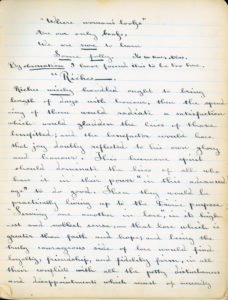 "Where woman's looks"
Are our only books,
We are sure to learn
Some folly. Thomas Moore
By observation I have found this to be too true.
"Riches"
Riches nicely handled ought to bring
length of days with honour, then the spend-
ing of them would radiate a satisfaction
which would gladden the heart of those
benefitted; and the benefactor would have
that joy doubly reflected to his own glory
and honour. This humane spirit
should dominate the lives of all who
have it in their power in this advanced
age to do good. Then they would be
practically living up to the Divine purpose
"Serving one another in love", in its high-
est and noblest sense, - that love which is
greater than faith and hope; and being the
truly courageous side of love would find
loyalty, friendship, and fidelity firm, in all
their conflicts with all the petty disturbances
and disappointments which must of necessity